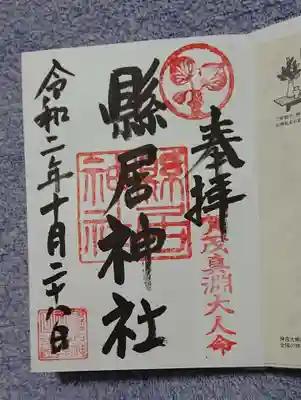 奉拝
賀茂眞淵大人命
縣居神社
縣居神社
令和二年十月二十八日